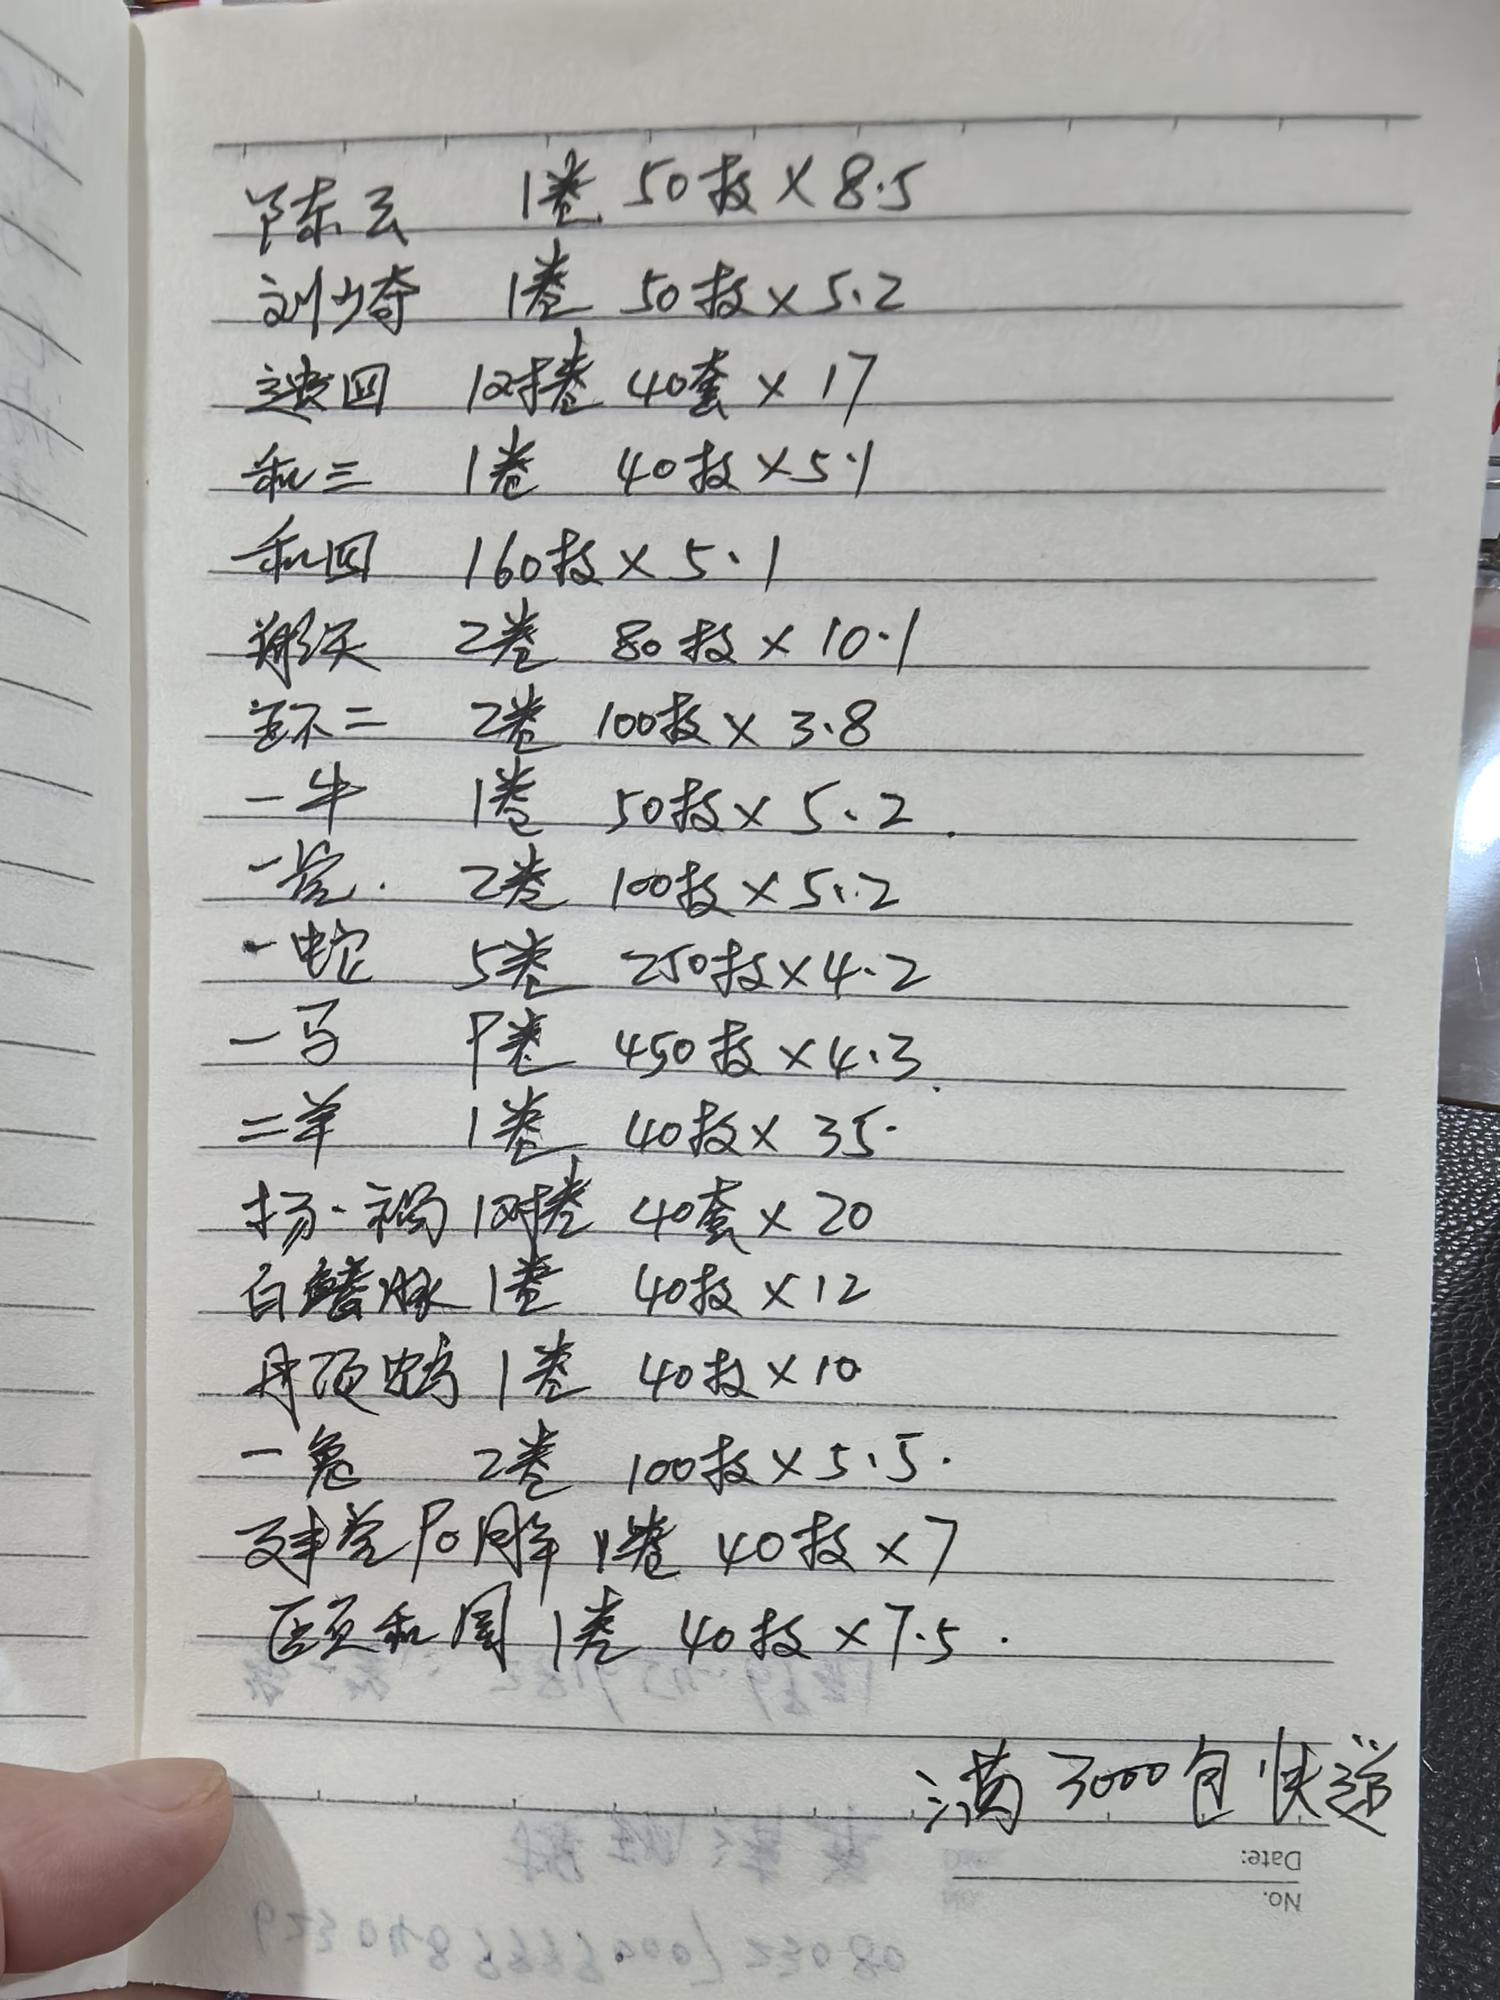 陈云 1卷 50枚×8.5
刘少奇 1卷 50枚×5.2
遗四 1对卷 40套×17
和三 1卷 40枚×5.1
和四 160枚×5.1
航天 2卷 80枚×10.1
环二 2卷 100枚×3.8
一牛 1卷 50枚×5.2.
一党. 2卷 100枚×5.2
一蛇 5卷 250枚×4.2
一马 9卷 450枚×4.3.
二羊 1卷 40枚×35.
扬·褐 1对卷 40套×20
白鳍豚 1卷 40枚×12
丹顶鹤 1卷 40枚×10
一兔 2卷 100枚×5.5.
建党90周年 1卷 40枚×7
颐和园 1卷 40枚×7.5.
满3000包快递
Date:
No.